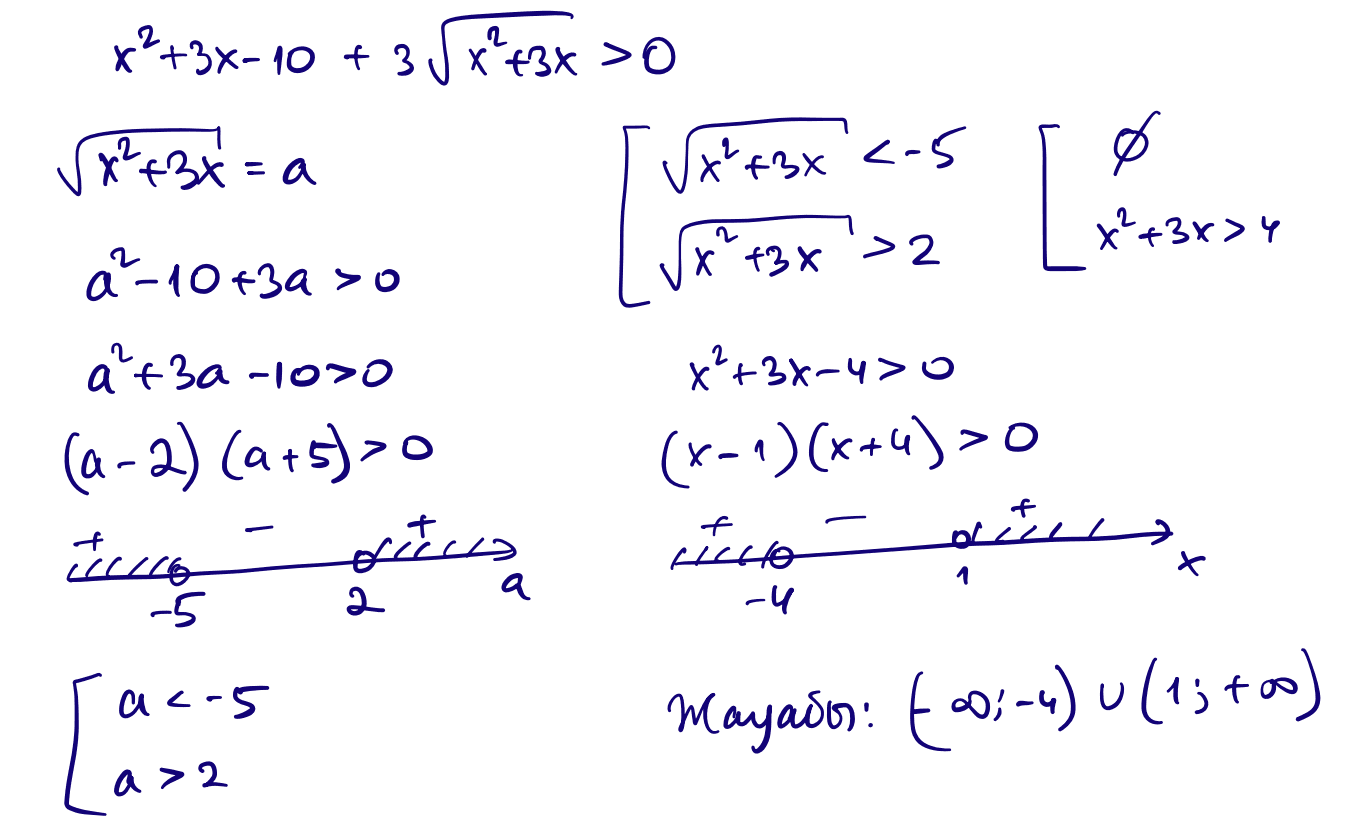 x²+3x-10 + 3√(x²+3x) > 0
√(x²+3x) = a
a²-10+3a > 0
a²+3a-10>0
(a-2)(a+5)>0
+ - +
-5 2 a
[ a < -5
a > 2
[ √(x²+3x) < -5
√(x²+3x) > 2
[ ∅
x²+3x > 4
x²+3x-4 > 0
(x-1)(x+4) > 0
+ - +
-4 1 x
(-∞;-4) ∪ (1;+∞)